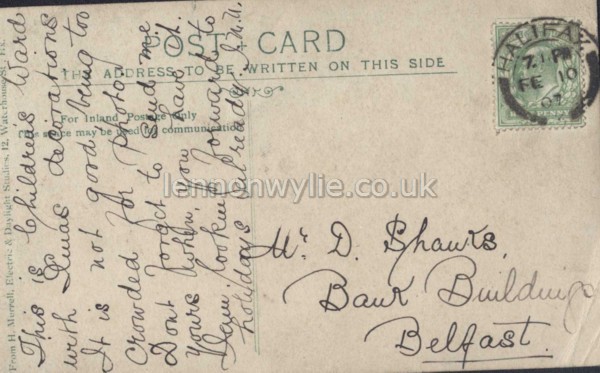 POST CARD
THE ADDRESS TO BE WRITTEN ON THIS SIDE
For Inland Postage Only
This space may be used for communication
From H. Morrell, Electric & Daylight Studios, 12, Waterhouse St., Hx.
This is Children's Ward
with Xmas decorations
It is not good being too
crowded for photo
Dont forget to send me
Yours when you have it.
I am looking forward to
holidays already
HALIFAX
7.1 PM
FE 10
07
Mr D. Shanks,
Bank Buildings
Belfast.
lennonwylie.co.uk